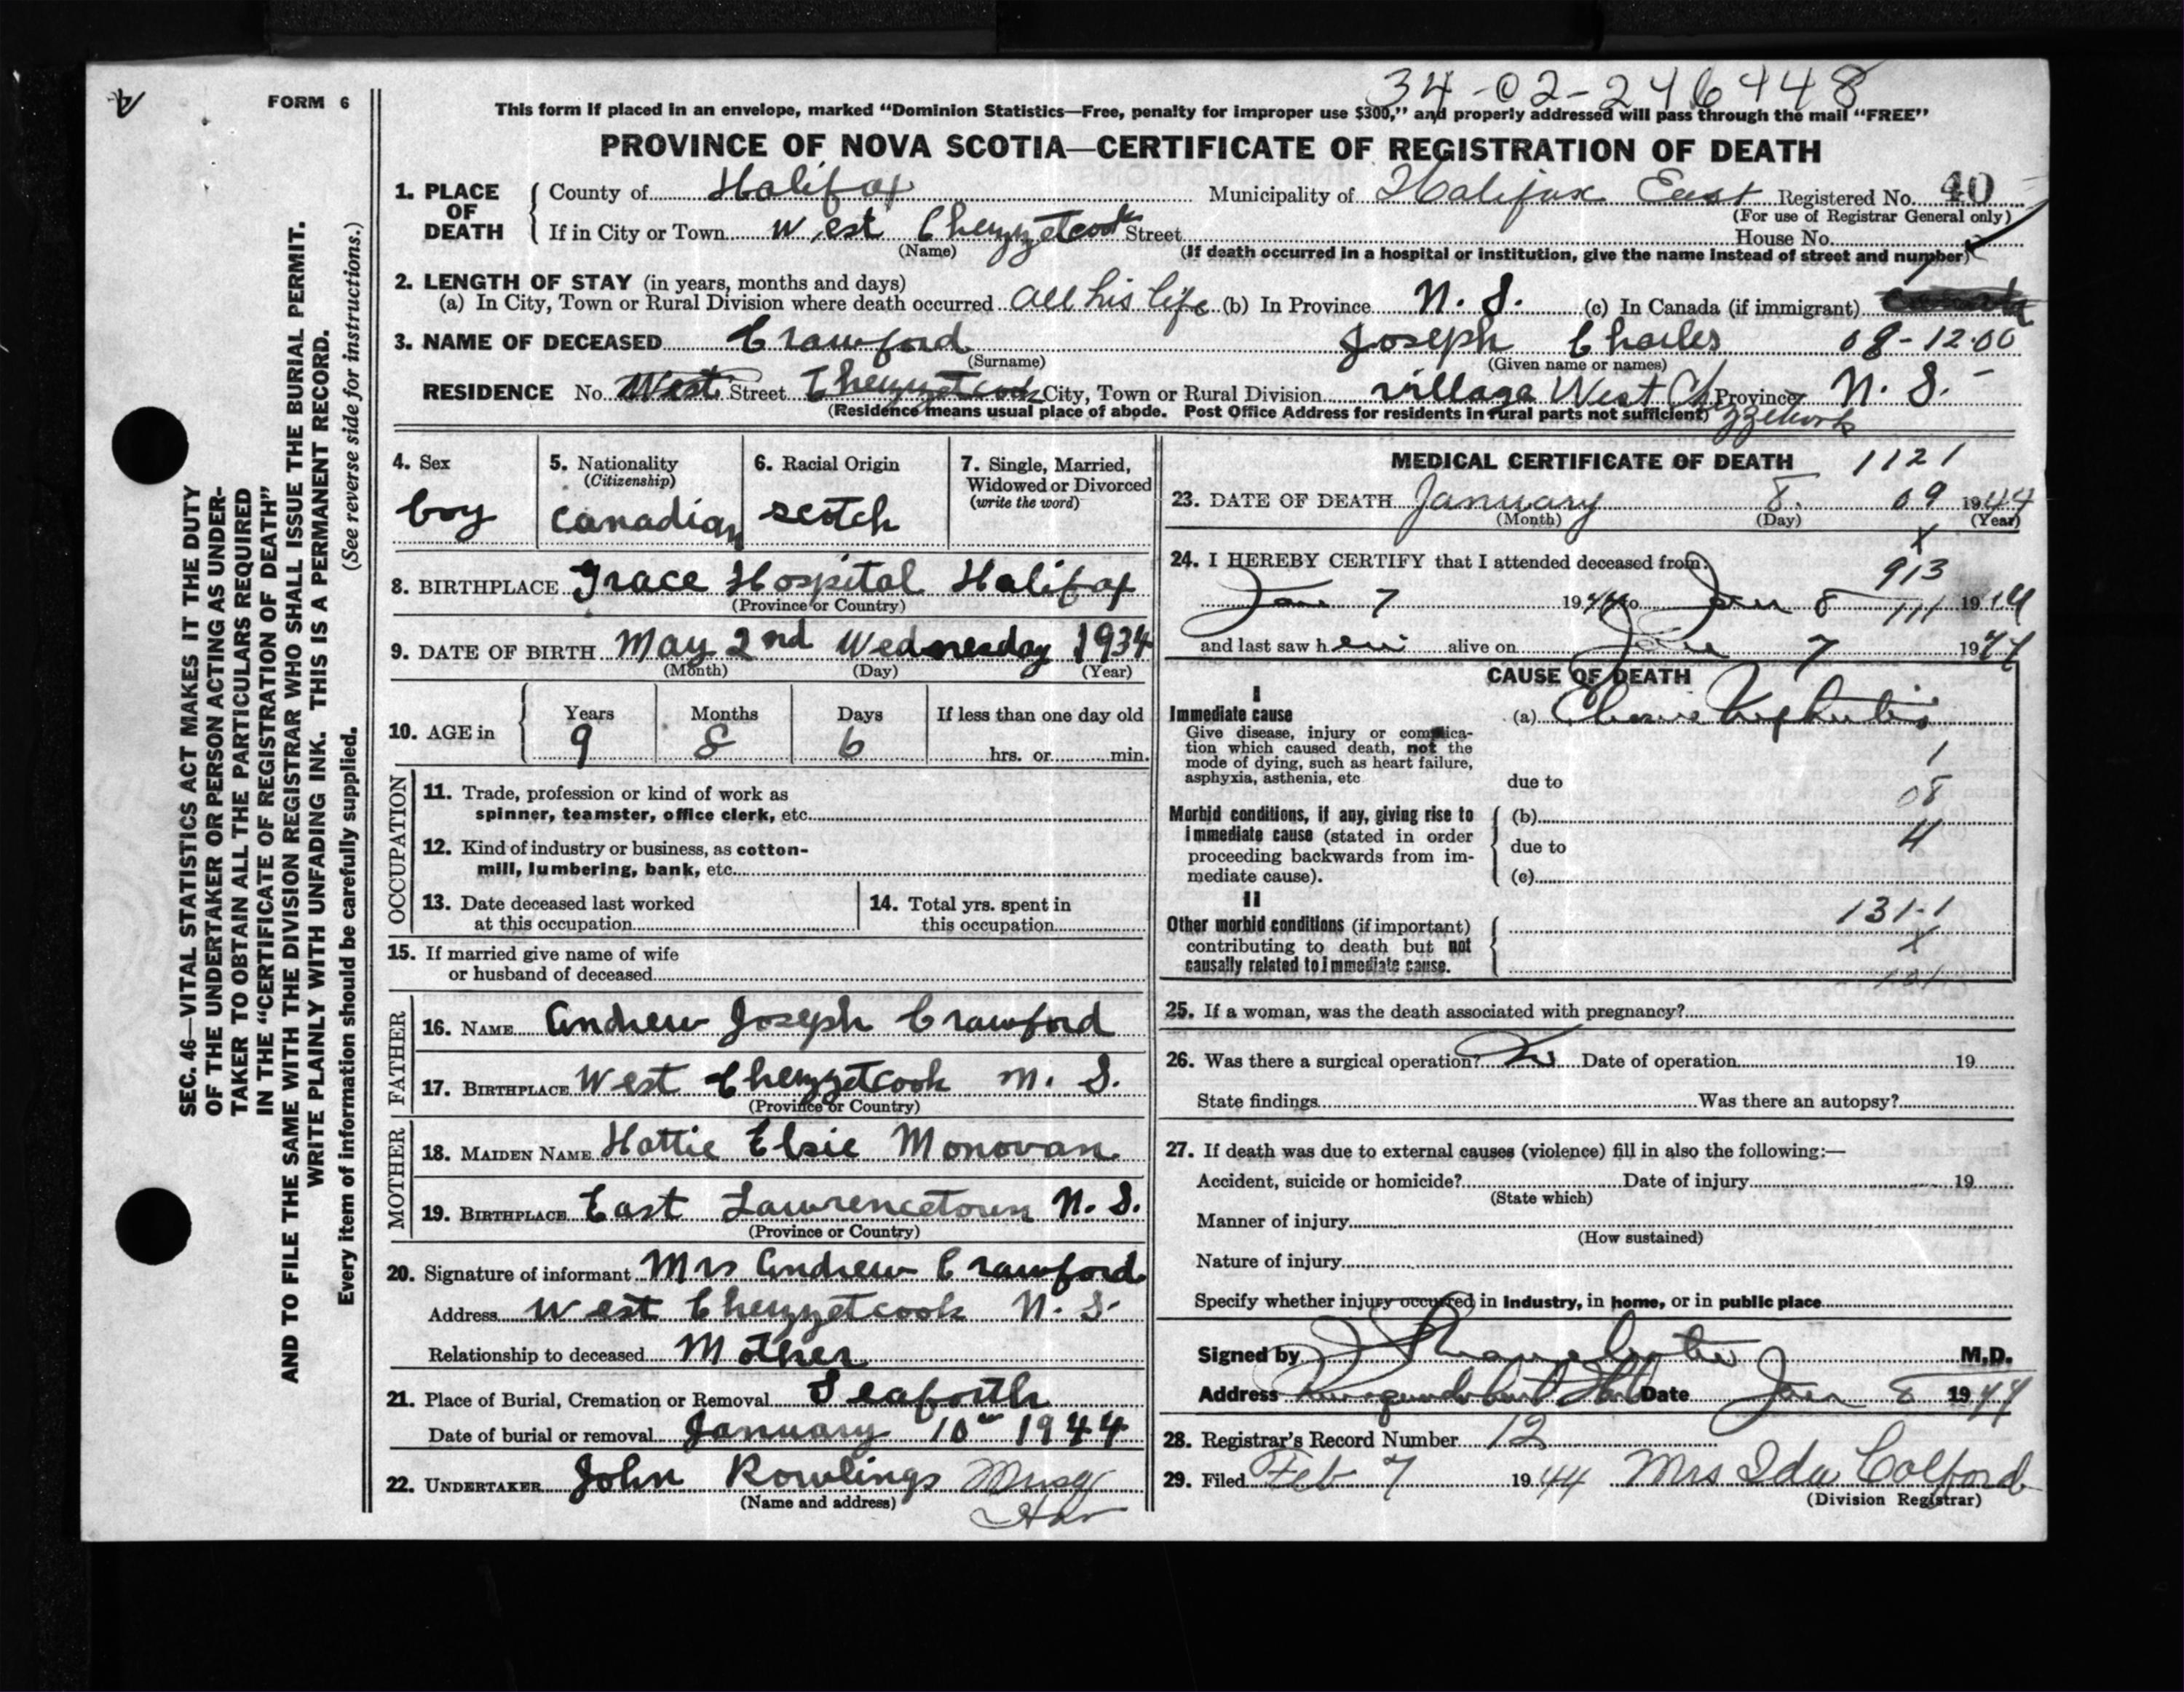 FORM 6
34-02-246448
This form if placed in an envelope, marked “Dominion Statistics—Free, penalty for improper use $300,” and properly addressed will pass through the mail “FREE”
PROVINCE OF NOVA SCOTIA—CERTIFICATE OF REGISTRATION OF DEATH
1. PLACE OF DEATH County of Halifax Municipality of Halifax East Registered No. 40
(For use of Registrar General only)
If in City or Town West Chezzetcook Street House No.
(Name) (If death occurred in a hospital or institution, give the name instead of street and number)
2. LENGTH OF STAY (in years, months and days)
(a) In City, Town or Rural Division where death occurred all his life (b) In Province N. S. (c) In Canada (if immigrant)
3. NAME OF DECEASED Crawford Joseph Charles 08-12-00
(Surname) (Given name or names)
RESIDENCE No. West Street Chezzetcook City, Town or Rural Division village West Chezzetcook Province N. S.
(Residence means usual place of abode. Post Office Address for residents in rural parts not sufficient)
4. Sex boy
5. Nationality (Citizenship) Canadian
6. Racial Origin scotch
7. Single, Married, Widowed or Divorced (write the word)
8. BIRTHPLACE Grace Hospital Halifax
(Province or Country)
9. DATE OF BIRTH May 2nd Wednesday 1934
(Month) (Day) (Year)
10. AGE in Years 9 Months 8 Days 6 If less than one day old hrs. or min.
OCCUPATION
11. Trade, profession or kind of work as
spinner, teamster, office clerk, etc.
12. Kind of industry or business, as cotton-
mill, lumbering, bank, etc.
13. Date deceased last worked at this occupation
14. Total yrs. spent in this occupation
15. If married give name of wife
or husband of deceased
FATHER
16. NAME Andrew Joseph Crawford
17. BIRTHPLACE West Chezzetcook N. S.
(Province or Country)
MOTHER
18. MAIDEN NAME Hattie Elsie Monovan
19. BIRTHPLACE East Lawrencetown N. S.
(Province or Country)
20. Signature of informant Mrs Andrew Crawford
Address West Chezzetcook N. S.
Relationship to deceased Mother
21. Place of Burial, Cremation or Removal Seaforth
Date of burial or removal January 10th 1944
22. UNDERTAKER John Rowlings Musq Har
(Name and address)
MEDICAL CERTIFICATE OF DEATH 1121
23. DATE OF DEATH January 8. 09 1944
(Month) (Day) (Year)
X
24. I HEREBY CERTIFY that I attended deceased from:
913
Jan 7 1944 to Jan 8 111 1944
and last saw h im alive on Jan 7 1944
CAUSE OF DEATH
I
Immediate cause (a) Chronic Nephritis
Give disease, injury or complica-
tion which caused death, not the
mode of dying, such as heart failure,
asphyxia, asthenia, etc
due to
1
08
4
Morbid conditions, if any, giving rise to
immediate cause (stated in order
proceeding backwards from im-
mediate cause).
(b)
due to
(c)
II
Other morbid conditions (if important)
contributing to death but not
causally related to immediate cause.
131-1
X
25. If a woman, was the death associated with pregnancy?
26. Was there a surgical operation? No Date of operation 19
State findings Was there an autopsy?
27. If death was due to external causes (violence) fill in also the following:—
Accident, suicide or homicide? Date of injury 19
(State which)
Manner of injury
(How sustained)
Nature of injury
Specify whether injury occurred in industry, in home, or in public place
Signed by M.D.
Address Date Jan 8 1944
28. Registrar's Record Number 12
29. Filed Feb 7 1944 Mrs Ida Colford
(Division Registrar)
SEC. 46—VITAL STATISTICS ACT MAKES IT THE DUTY
OF THE UNDERTAKER OR PERSON ACTING AS UNDER-
TAKER TO OBTAIN ALL THE PARTICULARS REQUIRED
IN THE “CERTIFICATE OF REGISTRATION OF DEATH”
AND TO FILE THE SAME WITH THE DIVISION REGISTRAR WHO SHALL ISSUE THE BURIAL PERMIT.
WRITE PLAINLY WITH UNFADING INK. THIS IS A PERMANENT RECORD.
Every item of information should be carefully supplied. (See reverse side for instructions.)